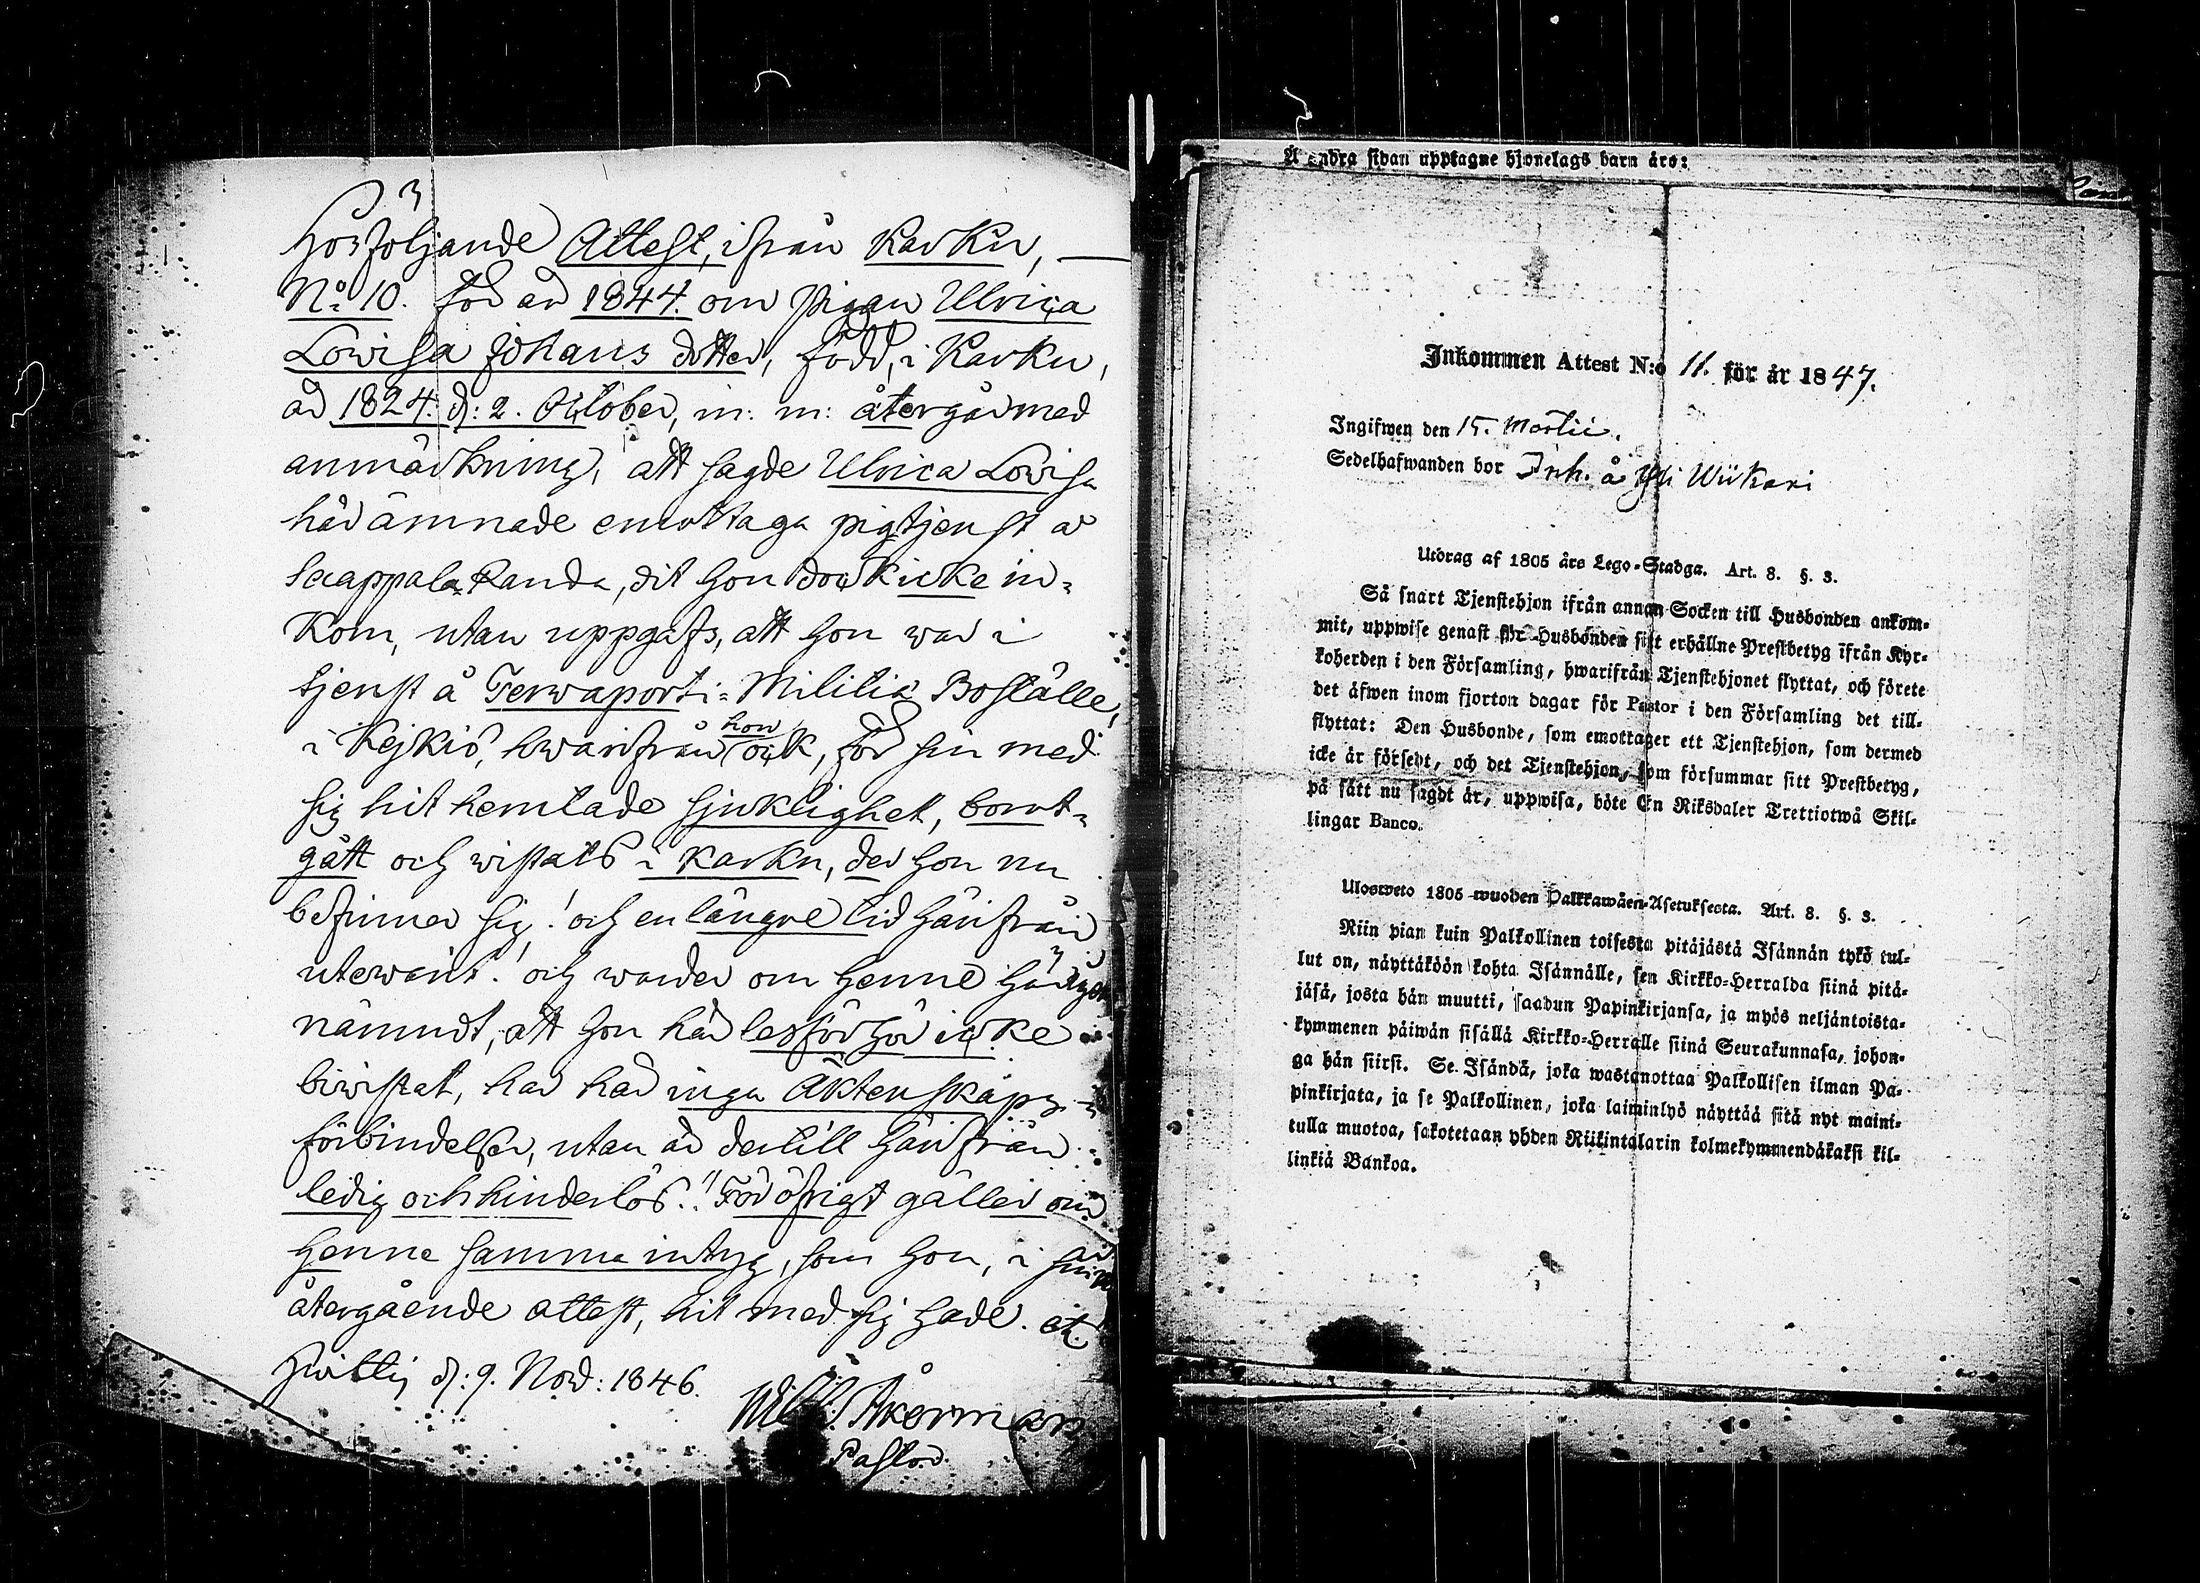 Hosföljande Attest, ifrån Karku, —
No 10. för år 1844. om pigan Ulrica
Lovisa Johans dotter, född, i Karku,
år 1824. d: 2. October, m: m: återgår med
anmärkning, att sagde Ulrica Lovisa
här ämnade emottaga pigtjenst å
Saappala Randa, dit hon dock icke in-
kom, utan uppgafs, att hon war i
tjenst å Terwaporti-Militiæ Boställe,
i Kejkiö, hwarifrån hon ock, för sin med
sig hit hemtade sjuklighet, bort-
gått och wistats i Karku, der hon nu
befinner sig! och en längre tid härifrån
utewarit! och warder om henne härigen
nämndt, att hon här läsförhör icke
biwistat, har här inga Äktenskaps-
förbindelser, utan är dertill härifrån
ledig och hinderlös!! För öfrigt gäller om
henne samma intyg, som hon, i sin
återgående attest, hit med sig hade.
Hvittis d: 9. Nov: 1846.
Wilh. Åkerman
Pastor.
Å andra sidan upptagne hjonelags barn äro:
Inkommen Attest N:o 11. för år 1847.
Ingifwen den 15. Martii.
Sedelhafwanden bor Inh. å Yli Wiikari
Utdrag af 1805 års Lego-Stadga. Art. 8. §. 3.
Så snart Tjenstehjon ifrån annan Socken till Husbonden ankom-
mit, uppwise genast för Husbonden sitt erhållne Prestbetyg ifrån Kyr-
koherden i den Församling, hwarifrån Tjenstehjonet flyttat, och förete
det äfwen inom fjorton dagar för Pastor i den Församling det till-
flyttat: Den Husbonde, som emottager ett Tjenstehjon, som dermed
icke är försedt, och det Tjenstehjon, som försummar sitt Prestbetyg,
på sätt nu sagdt är, uppwisa, böte En Riksdaler Trettiotwå Skil-
lingar Banco.
Ulosweto 1805 wuoden Palkkawäen-Asetuksesta. Art. 8. §. 3.
Niin pian kuin Palkollinen toisesta pitäjästä Isännän tykö tul-
lut on, näyttäköön kohta Isännälle, sen Kirkko-Herralda siinä pitä-
jäsä, josta hän muutti, saadun Papinkirjansa, ja myös neljäntoista-
kymmenen päiwän sisällä Kirkko-Herralle siinä Seurakunnasa, johon-
ga hän siirsi. Se Isändä, joka wastanottaa Palkollisen ilman Pa-
pinkirjata, ja se Palkollinen, joka laiminlyö näyttää sitä nyt maini-
tulla muotoa, sakotetaan yhden Riikintalarin kolmekymmendäkaksi kil-
linkiä Bankoa.